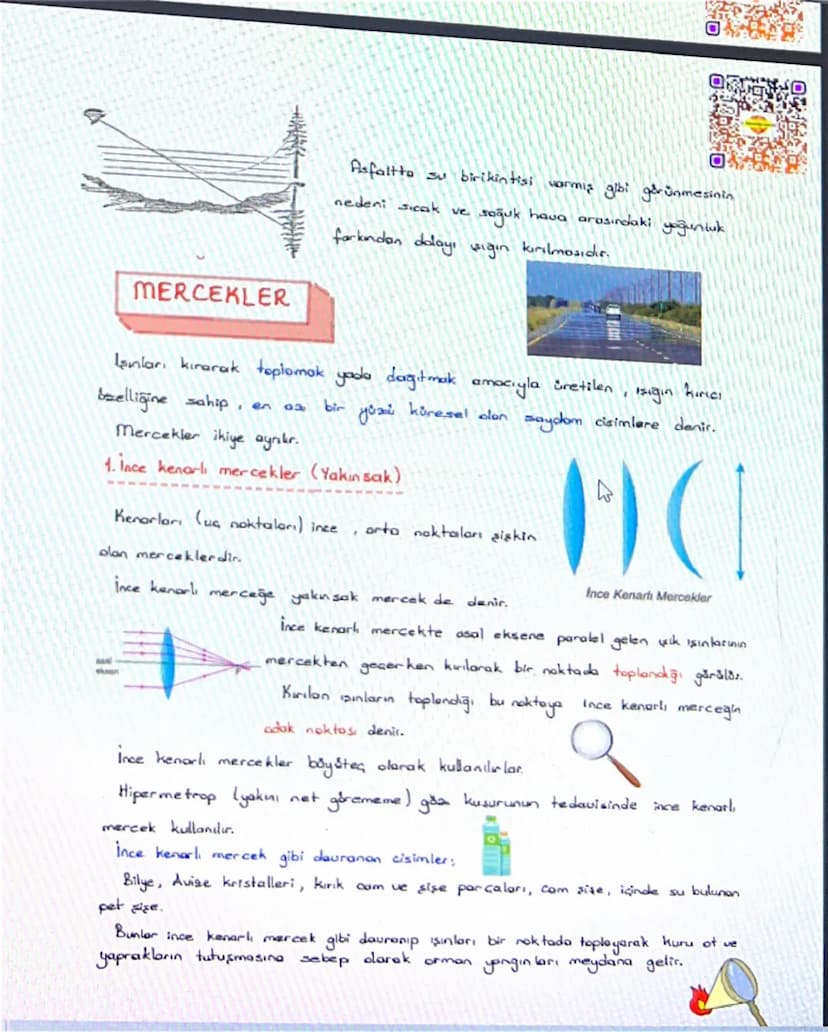 Asfaltta su birikintisi varmış gibi görünmesinin
nedeni sıcak ve soğuk hava arasındaki yoğunluk
farkından dolayı ışığın kırılmasıdır.
MERCEKLER
Işınları kırarak toplamak yada dağıtmak amacıyla üretilen, ışığın kırıcı
özelliğine sahip, en az bir yüzü küresel olan saydam cisimlere denir.
Mercekler ikiye ayrılır.
1. İnce kenarlı mercekler (Yakınsak)
Kenarları (uç noktaları) ince, orta noktaları şişkin
olan merceklerdir.
İnce kenarlı merceğe yakınsak mercek de denir.
İnce Kenarlı Mercekler
İnce kenarlı mercekte asal eksene paralel gelen ışık ışınlarının
mercekten geçerken kırılarak bir noktada toplandığı görülür.
asal
eksen
Kırılan ışınların toplandığı bu noktaya ince kenarlı merceğin
odak noktası denir.
İnce kenarlı mercekler büyüteç olarak kullanılırlar.
Hipermetrop (yakını net görememe) göz kusurunun tedavisinde ince kenarlı
mercek kullanılır.
İnce kenarlı mercek gibi davranan cisimler;
Bilye, Avize kristalleri, kırık cam ve şişe parçaları, cam şişe, içinde su bulunan
pet şişe.
Bunlar ince kenarlı mercek gibi davranıp ışınları bir noktada toplayarak kuru ot ve
yaprakların tutuşmasına sebep olarak orman yangınları meydana gelir.